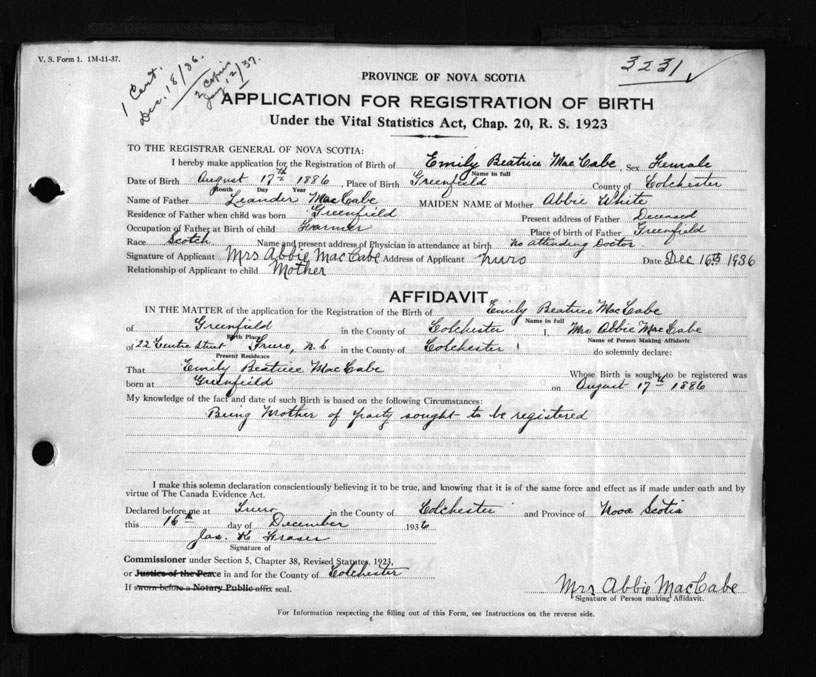 V. S. Form 1. 1M-11-37.
1 Cert.
Dec. 18/36.
2 Copies
Jan 12/37.
3231
PROVINCE OF NOVA SCOTIA
APPLICATION FOR REGISTRATION OF BIRTH
Under the Vital Statistics Act, Chap. 20, R. S. 1923
TO THE REGISTRAR GENERAL OF NOVA SCOTIA:
I hereby make application for the Registration of Birth of Emily Beatrice MacCabe, Sex Female
Name in full
Date of Birth August 17th 1886, Place of Birth Greenfield County of Colchester
Month Day Year
Name of Father Leander MacCabe MAIDEN NAME of Mother Abbie White
Residence of Father when child was born Greenfield Present address of Father Deceased
Occupation of Father at Birth of child Farmer Place of birth of Father Greenfield
Race Scotch Name and present address of Physician in attendance at birth No attending Doctor.
Signature of Applicant Mrs Abbie MacCabe Address of Applicant Truro Date Dec 16th 1936
Relationship of Applicant to child Mother
AFFIDAVIT
IN THE MATTER of the application for the Registration of the Birth of Emily Beatrice MacCabe
Name in full
of Greenfield in the County of Colchester I, Mrs Abbie MacCabe
Birth Place Name of Person Making Affidavit
of 22 Centre Street Truro, N.S in the County of Colchester do solemnly declare:
Present Residence
That Emily Beatrice MacCabe Whose Birth is sought to be registered was
born at Greenfield on August 17th 1886
My knowledge of the fact and date of such Birth is based on the following Circumstances:
Being Mother of party sought to be registered
I make this solemn declaration conscientiously believing it to be true, and knowing that it is of the same force and effect as if made under oath and by
virtue of The Canada Evidence Act.
Declared before me at Truro in the County of Colchester and Province of Nova Scotia
this 16th day of December 1936
Jas. K Fraser
Signature of
Commissioner under Section 5, Chapter 38, Revised Statutes, 1923.
or Justice of the Peace in and for the County of Colchester
If sworn before a Notary Public affix seal.
Mrs Abbie MacCabe
Signature of Person making Affidavit.
For Information respecting the filling out of this Form, see Instructions on the reverse side.